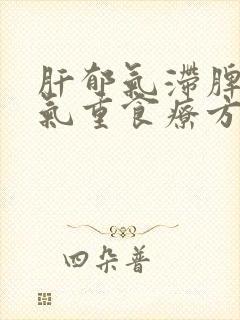 肝郁氣滞脾
氣重食療方
四朵普